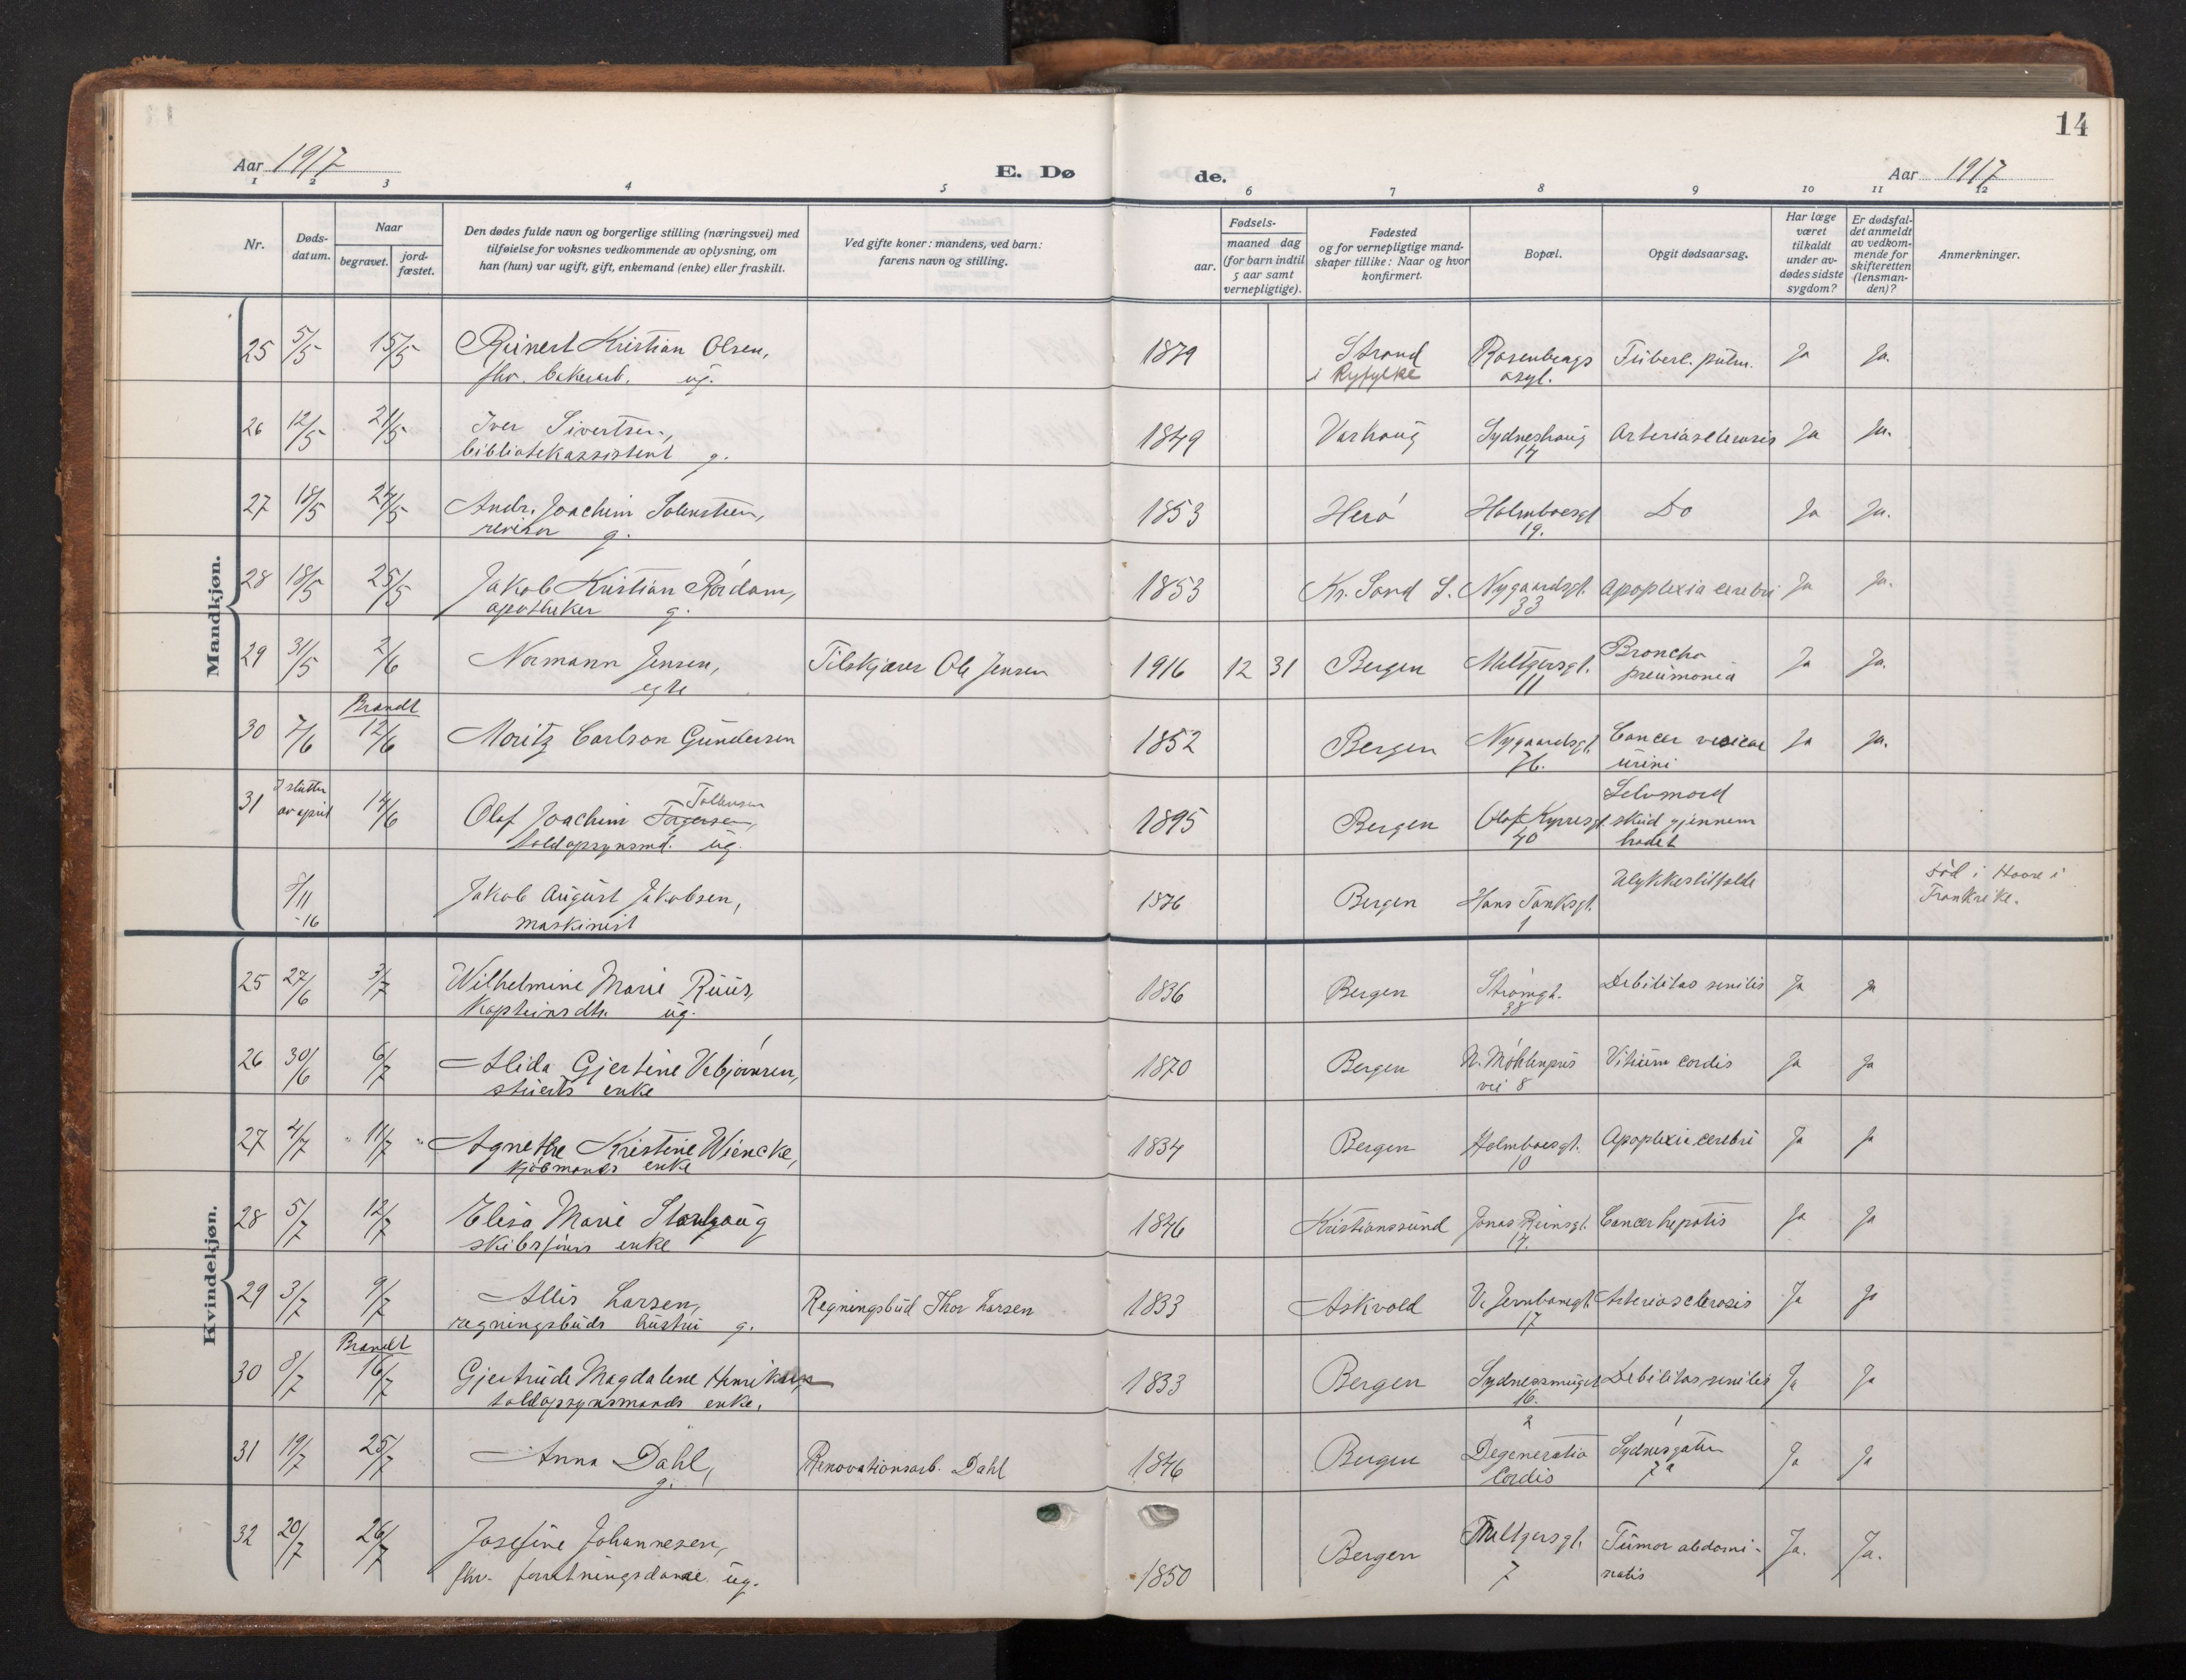 14
Aar 1917
E. Dø de.
Aar 1917
1 2 3 4 5 6 7 8 9 10 11 12
Nr.
Døds-datum.
Naar
begravet.
jord-fæstet.
Den dødes fulde navn og borgerlige stilling (næringsvei) med
tilføielse for voksnes vedkommende av oplysning, om
han (hun) var ugift, gift, enkemand (enke) eller fraskilt.
Ved gifte koner: mandens, ved barn:
farens navn og stilling.
Fødsels-
aar.
maaned dag
(for barn indtil
5 aar samt
vernepligtige).
Fødested
og for vernepligtige mand-
skaper tillike: Naar og hvor
konfirmert.
Bopæl.
Opgit dødsaarsag.
Har læge
været
tilkaldt
under av-
dødes sidste
sygdom?
Er dødsfal-
det anmeldt
av vedkom-
mende for
skifteretten
(lensman-
den)?
Anmerkninger.
Mandkjøn.
25 5/5 15/5 Reinert Kristian Olsen, 1879 Strand Rosenbergs Tuberl. pulm. Ja Ja.
fhv. bakerarb. ug. i Ryfylke asyl.
26 12/5 21/5 Iver Sivertsen, 1849 Varhaug Sydneshaug Arteriasclerosis Ja Ja.
bibliotekassistent g. 14
27 18/5 24/5 Andr. Joachim Solensteen, 1853 Herö Holmboesgt Do Ja Ja.
revisor g. 19.
28 18/5 25/5 Jakob Kristian Rördam, 1853 Kr. Sand S. Nygaardsgt. Apoplexia cerebri Ja Ja.
apotheker g. 33
29 31/5 2/6 Normann Jensen, Tilskjærer Ole Jensen 1916 12 31 Bergen Meltzersgt. Broncho Ja Ja.
egte 11 pneumonia
Brandt
30 7/6 12/6 Moritz Carlson Gundersen 1852 Bergen Nygaardsgt. Cancer vesicae Ja Ja.
76. urini
31 I slutten av april 14/6 Olaf Joachim Torgersen, Tollevsen 1895 Bergen Olaf Kyrresgt. Selvmord
toldopsynsmd. ug. 40 skud gjennem
hodet
8/11 -16 Jakob August Jakobsen, 1876 Bergen Hans Tanksgt. Ulykkestilfælde Död i Havre i
maskinist 1 Frankrike.
Kvindekjøn.
25 27/6 3/7 Wilhelmine Marie Ruus, 1836 Bergen Strömgt. Debilitas senilis Ja Ja
Kapteinsdtr. ug. 38
26 30/6 6/7 Alida Gjertine Vebjörnsen, 1870 Bergen N. Möhlenpris Vitium cordis Ja Ja
stuerts enke vei 8
27 4/7 " 11/7 " Agnethe Kristine Wiencke, 1834 Bergen Holmboesgt. Apoplexia cerebri Ja Ja
kjöbmands enke 10
28 5/7 12/7 Elisa Marie Storhaug 1846 Kristianssund Jonas Reinsgt. Cancer hepatis Ja Ja
skibsförers enke 14.
29 3/7 9/7 Allis Larsen, Regningsbud Thor Larsen 1833 Askvold V. Jernbanegt. Arteriosclerosis Ja Ja
regningsbuds hustru g. 17
Brandt
30 8/7 16/7 Gjertrude Magdalene Henriksen 1833 Bergen Sydnessmuget Debilitas senilis Ja Ja
toldopsynsmands enke. 16.
2 1
31 19/7 25/7 Anna Dahl, Renovationsarb. Dahl 1846 Bergen Degeneratio Sydnesgaten Ja Ja
g. Cordis 7a
32 20/7 26/7 Josefine Johannesen, 1850 Bergen Meltzersgt. Tumor abdomi- Ja. Ja.
fhv. forretningsdame ug. 7 nalis